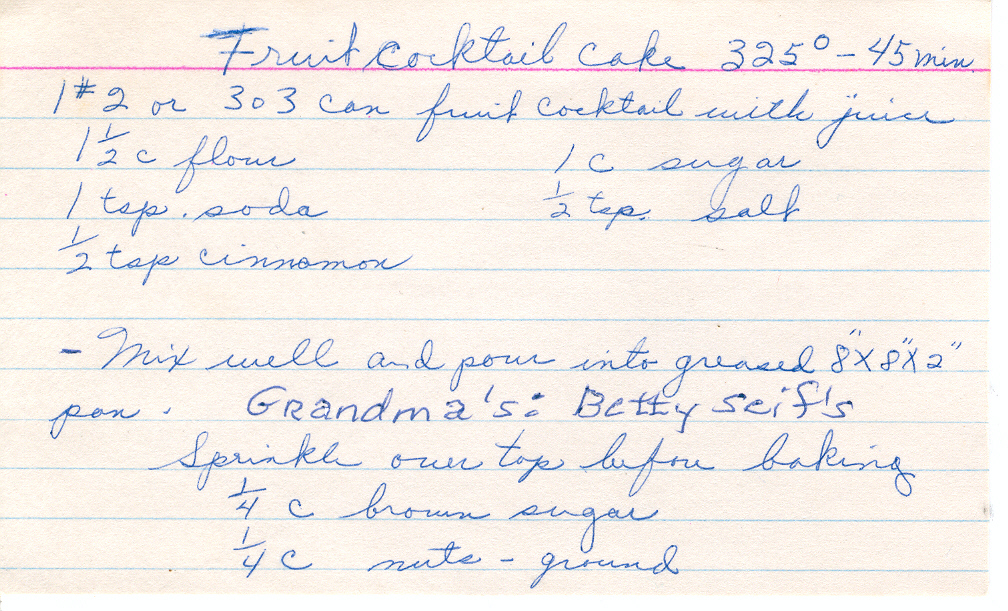 Fruit cocktail cake 325° - 45 min.
1 #2 or 303 can fruit cocktail with juice
1 1/2 c flour 1 c sugar
1 tsp. soda 1/2 tsp. salt
1/2 tsp cinnamon
- Mix well and pour into greased 8" X 8" X 2"
pan. Grandma's: Betty Seif's
Sprinkle over top before baking
1/4 c brown sugar
1/4 c nuts - ground